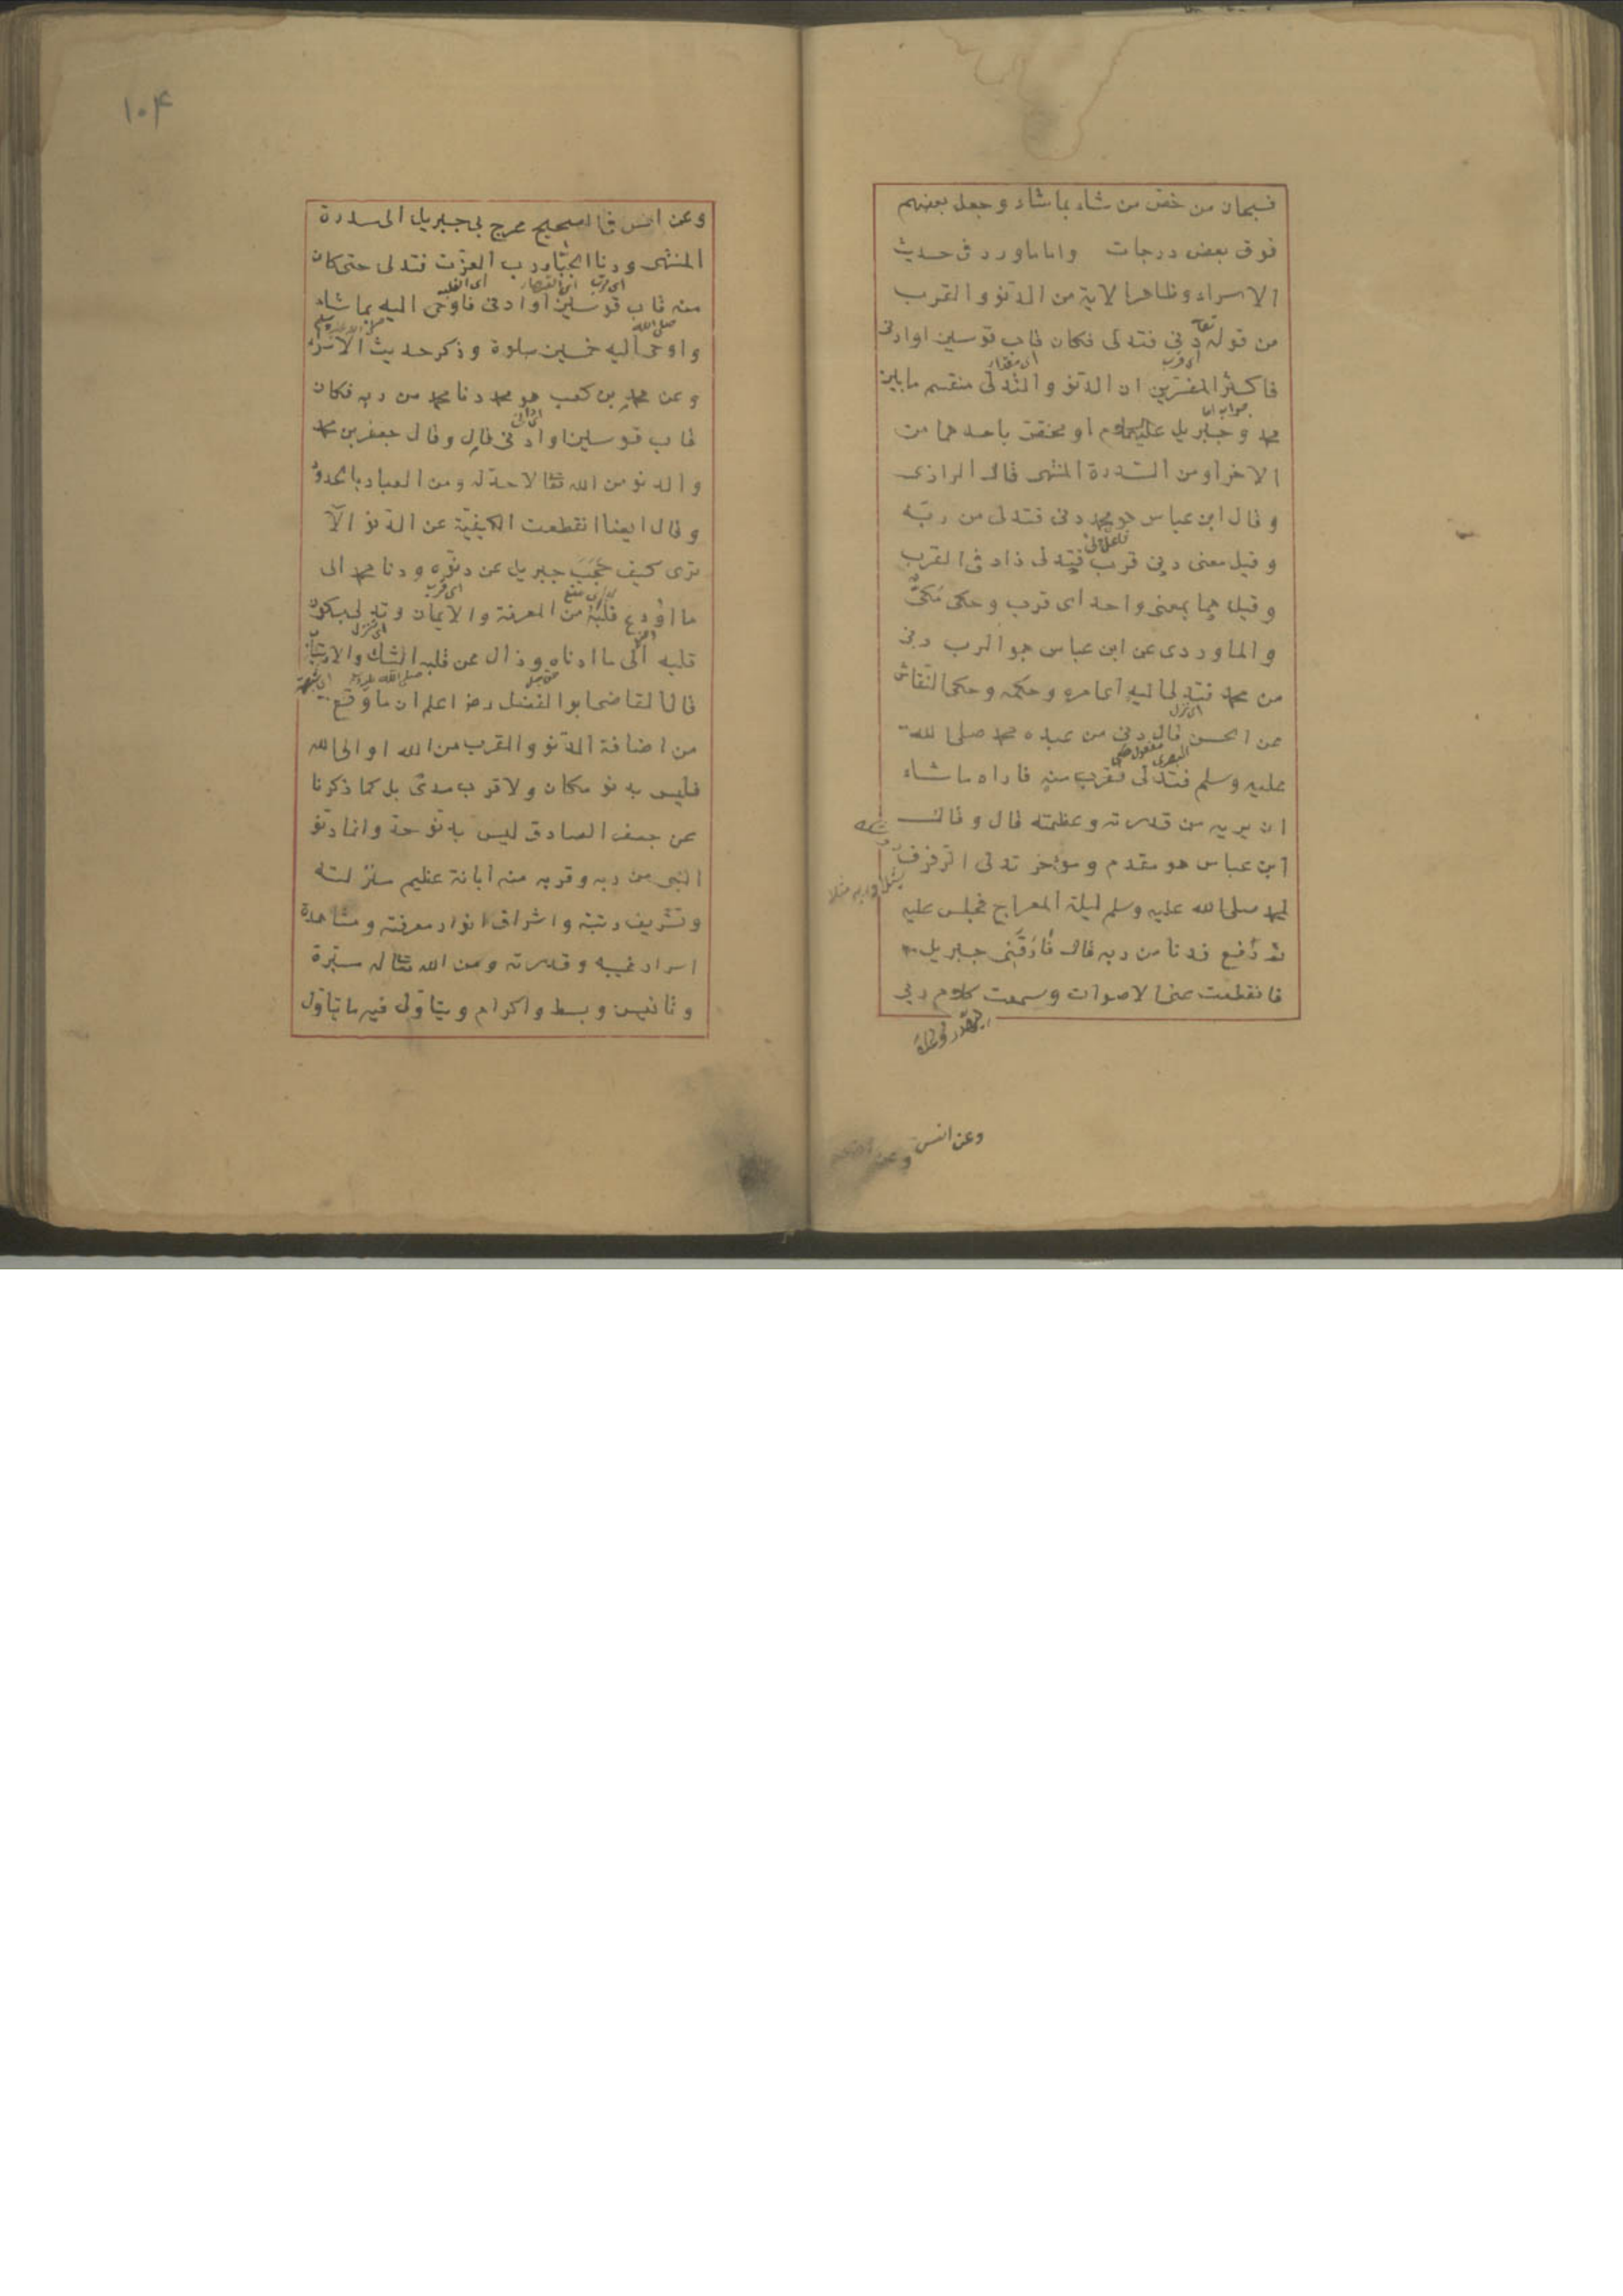 فسبحان من خص من شاء بما شاء وجعل بعضهم
فوق بعض درجات واما ما ورد فى حديث
الاسراء وظاهر الاية من الدنو والقرب
من قوله تعا دنى فتدلى فكان قاب قوسين او ادنى
فاكثر المفسرين ان الدنو والتدلى منقسم ما بين
محمد وجبريل عليهما السلام او مختص باحدهما من
الاخر او من السدرة المنتهى قال الرازى
وقال ابن عباس هو محمد دنى فتدلى من ربه
وقيل معنى دنى قرب فتدلى زاد فى القرب
وقيل هما بمعنى واحد اى قرب وحكى مكى
والماوردى عن ابن عباس هو الرب دنى
من محمد فتدلى اليه اى امره وحكمه وحكى النقاش
عن الحسن قال دنى من عبده محمد صلى الله
عليه وسلم فتدلى فقرب منه فاراه ما شاء
ان يريه من قدرته وعظمته قال وقال
ابن عباس هو مقدم ومؤخر تدلى الرفرف
لمحمد صلى الله عليه وسلم ليلة المعراج فجلس عليه
ثم رفع فدنا من ربه قال فارقنى جبريل
فانقطعت عنى الاصوات وسمعت كلام ربى
وعن انس
١٠٤
وعن انس فى الصحيح عرج بى جبريل الى سدرة
المنتهى ودنا الجبار رب العزت فتدلى حتى كان
منه قاب قوسين او ادنى فاوحى اليه بما شاء
واوحى اليه خمسين صلوة وذكر حديث الاسراء
وعن محمد بن كعب هو محمد دنا محمد من ربه فكان
قاب قوسين او ادنى قال وقال جعفر بن محمد
والدنو من الله تعالى لا حد له ومن العباد بالحدود
وقال ايضا انقطعت الكيفية عن الدنو الا
ترى كيف حجب جبريل عن دنوه ودنا محمد الى
ما اودع قلبه من المعرفة والايمان وتدلى بسكون
قلبه الى ما ادناه وزال عن قلبه الشك والارتياب
قال القاضى ابو الفضل رضـ اعلم ان ما وقع
من اضافة الدنو والقرب من الله او الى الله
فليس بدنو مكان ولا قرب مدى بل كما ذكرنا
عن جعفر الصادق ليس بدنو حد وانما دنو
النبى من ربه وقربه منه ابانة عظيم منزلته
وتشريف رتبته واشراق انوار معرفته ومشاهدة
اسرار غيبه وقدرته ومن الله تعالى له مبرة
وتانيس وبسط واكرام ويتاول فيه ما يتاول